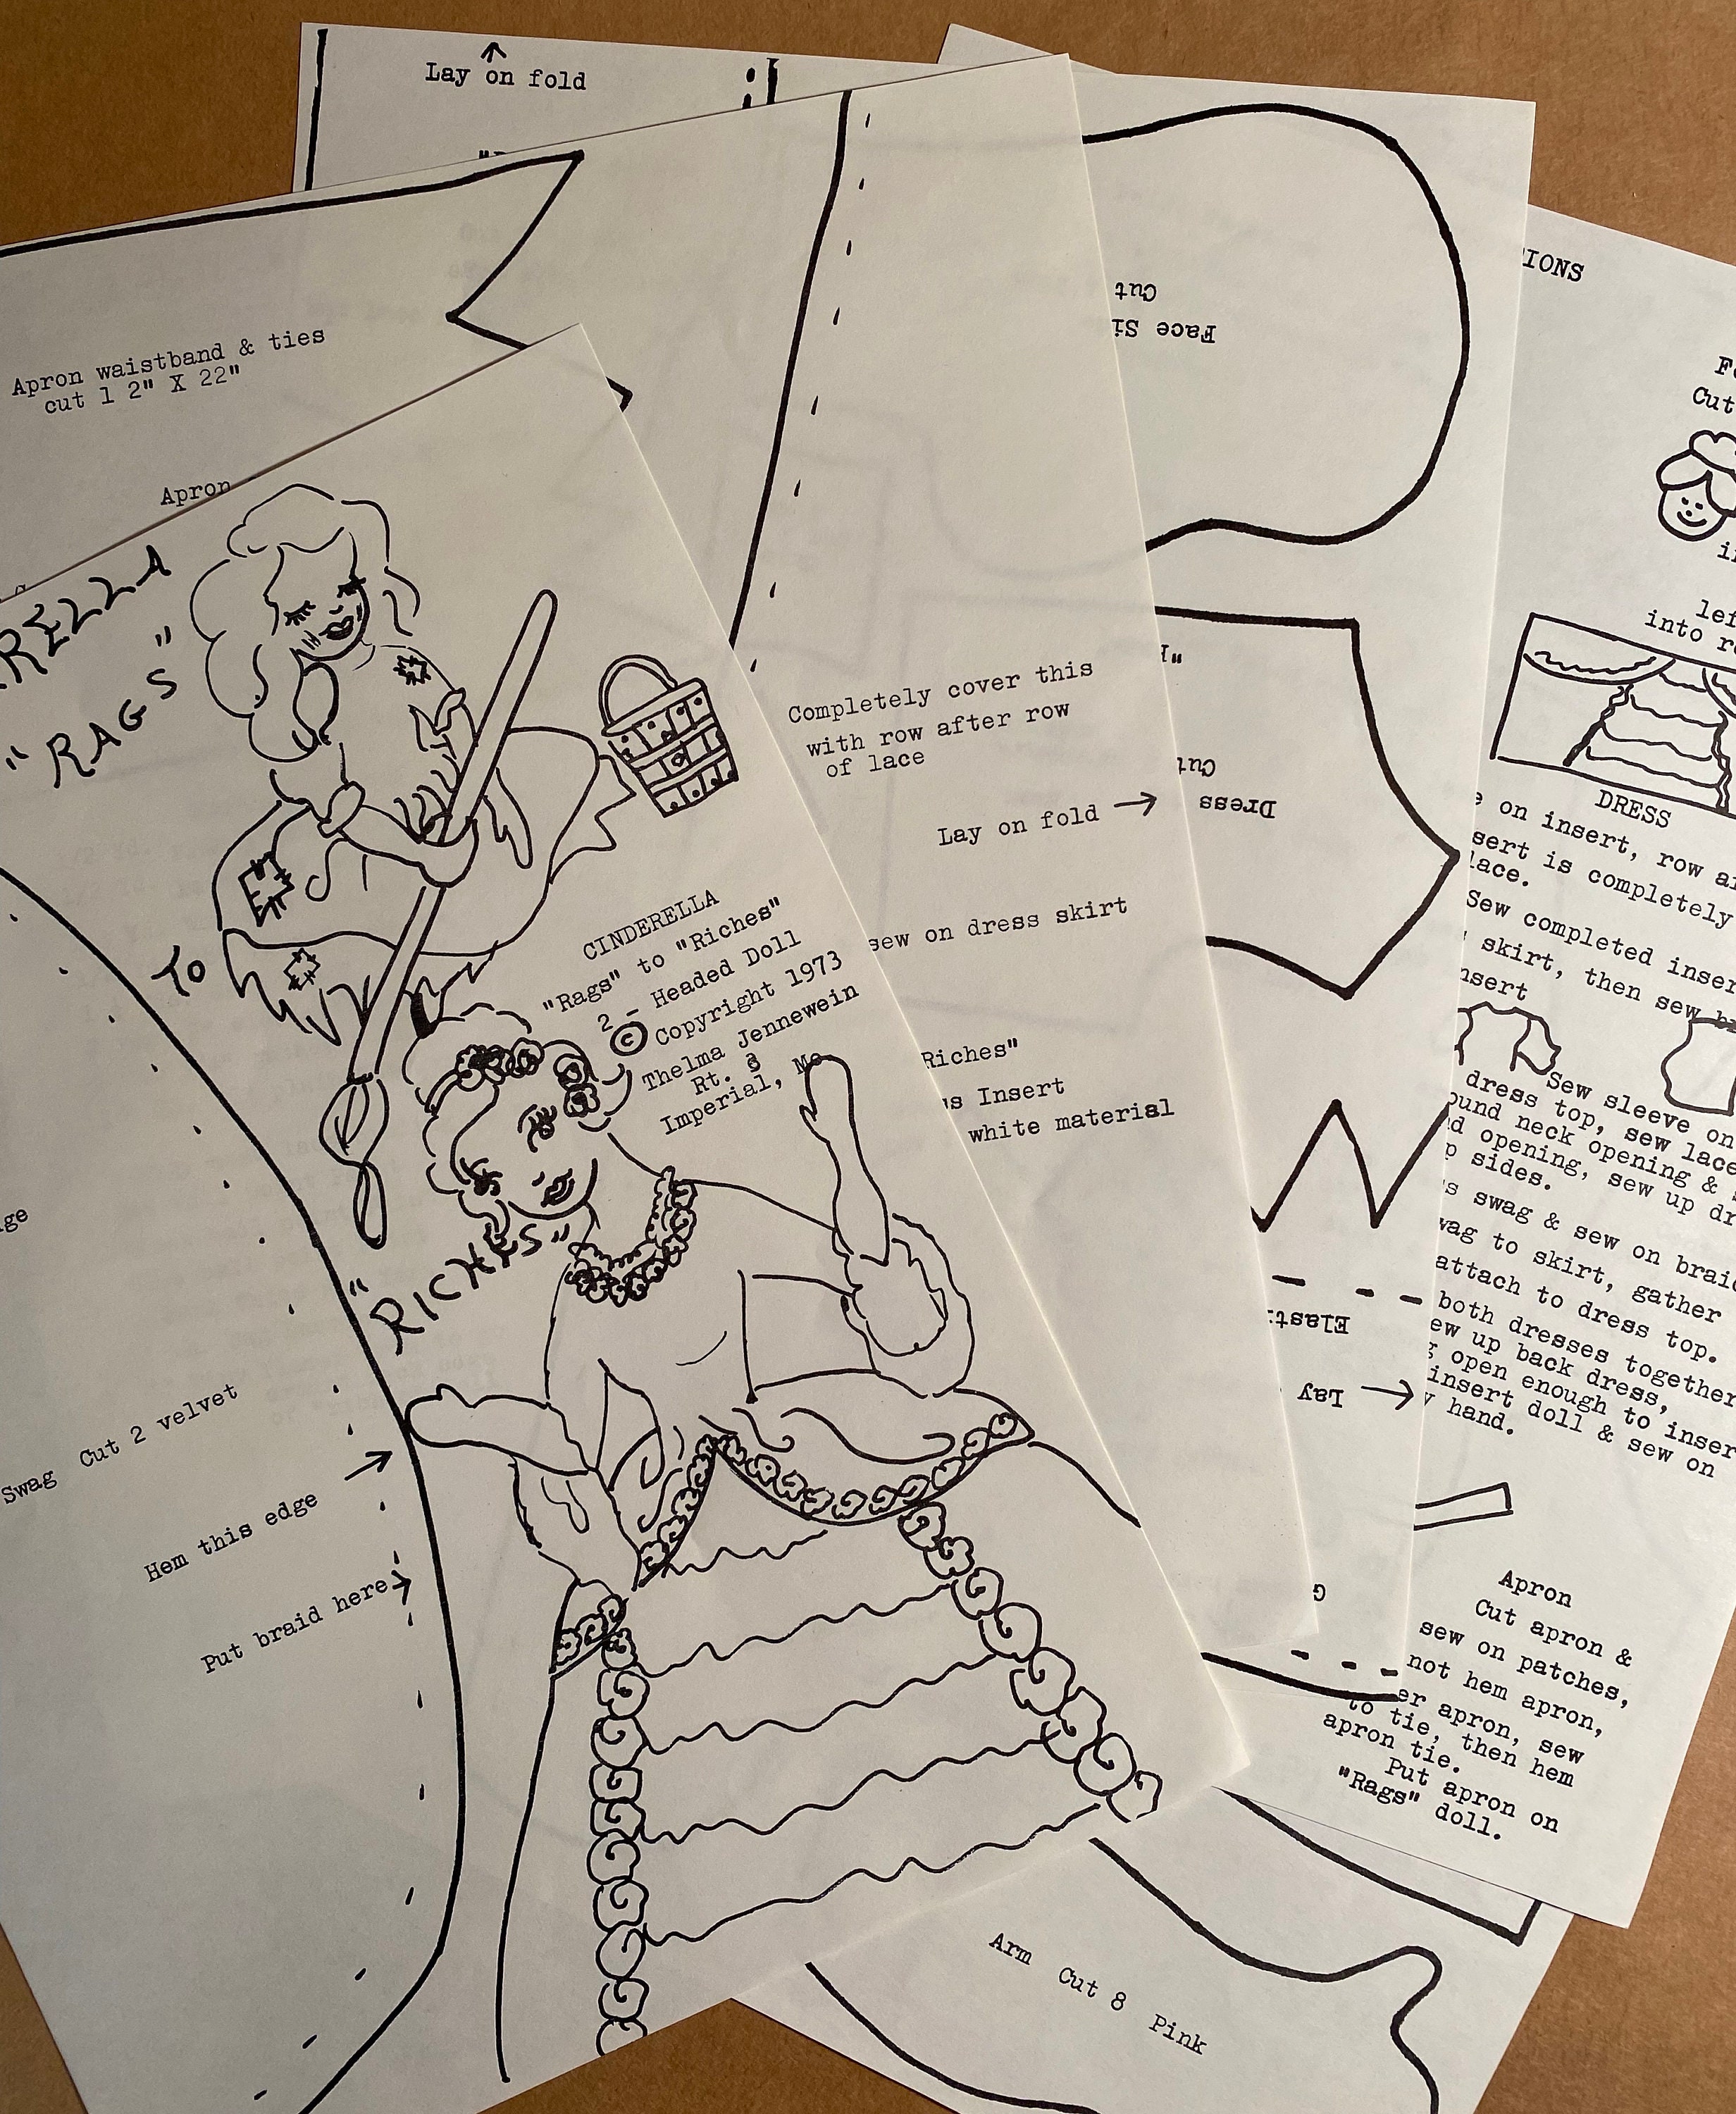 Lay on fold
Apron waistband & ties
cut 1 2" X 22"
Apron
"RAGS"
TO
"RICHES"
CINDERELLA
"Rags" to "Riches"
2 - Headed Doll
© Copyright 1973
Thelma Jennewein
Rt. 3
Imperial, Mo
Swag Cut 2 velvet
Hem this edge
Put braid here
Completely cover this
with row after row
of lace
Lay on fold
sew on dress skirt
Riches"
Insert
white material
Cut
Face
Cut
Dress
Lay
Arm Cut 8 Pink
Cut
into
DRESS
on insert, row
is completely
Sew completed
skirt, then sew
Sew sleeve on
dress top, sew lace
neck opening &
opening, sew up
sides.
swag & sew on
to skirt, gather
attach to dress top.
both dresses together
up back dress,
open enough to
insert doll & sew on
hand.
Apron
Cut apron &
sew on patches,
not hem apron,
apron, sew
to tie, then hem
apron tie.
Put apron on
"Rags" doll.